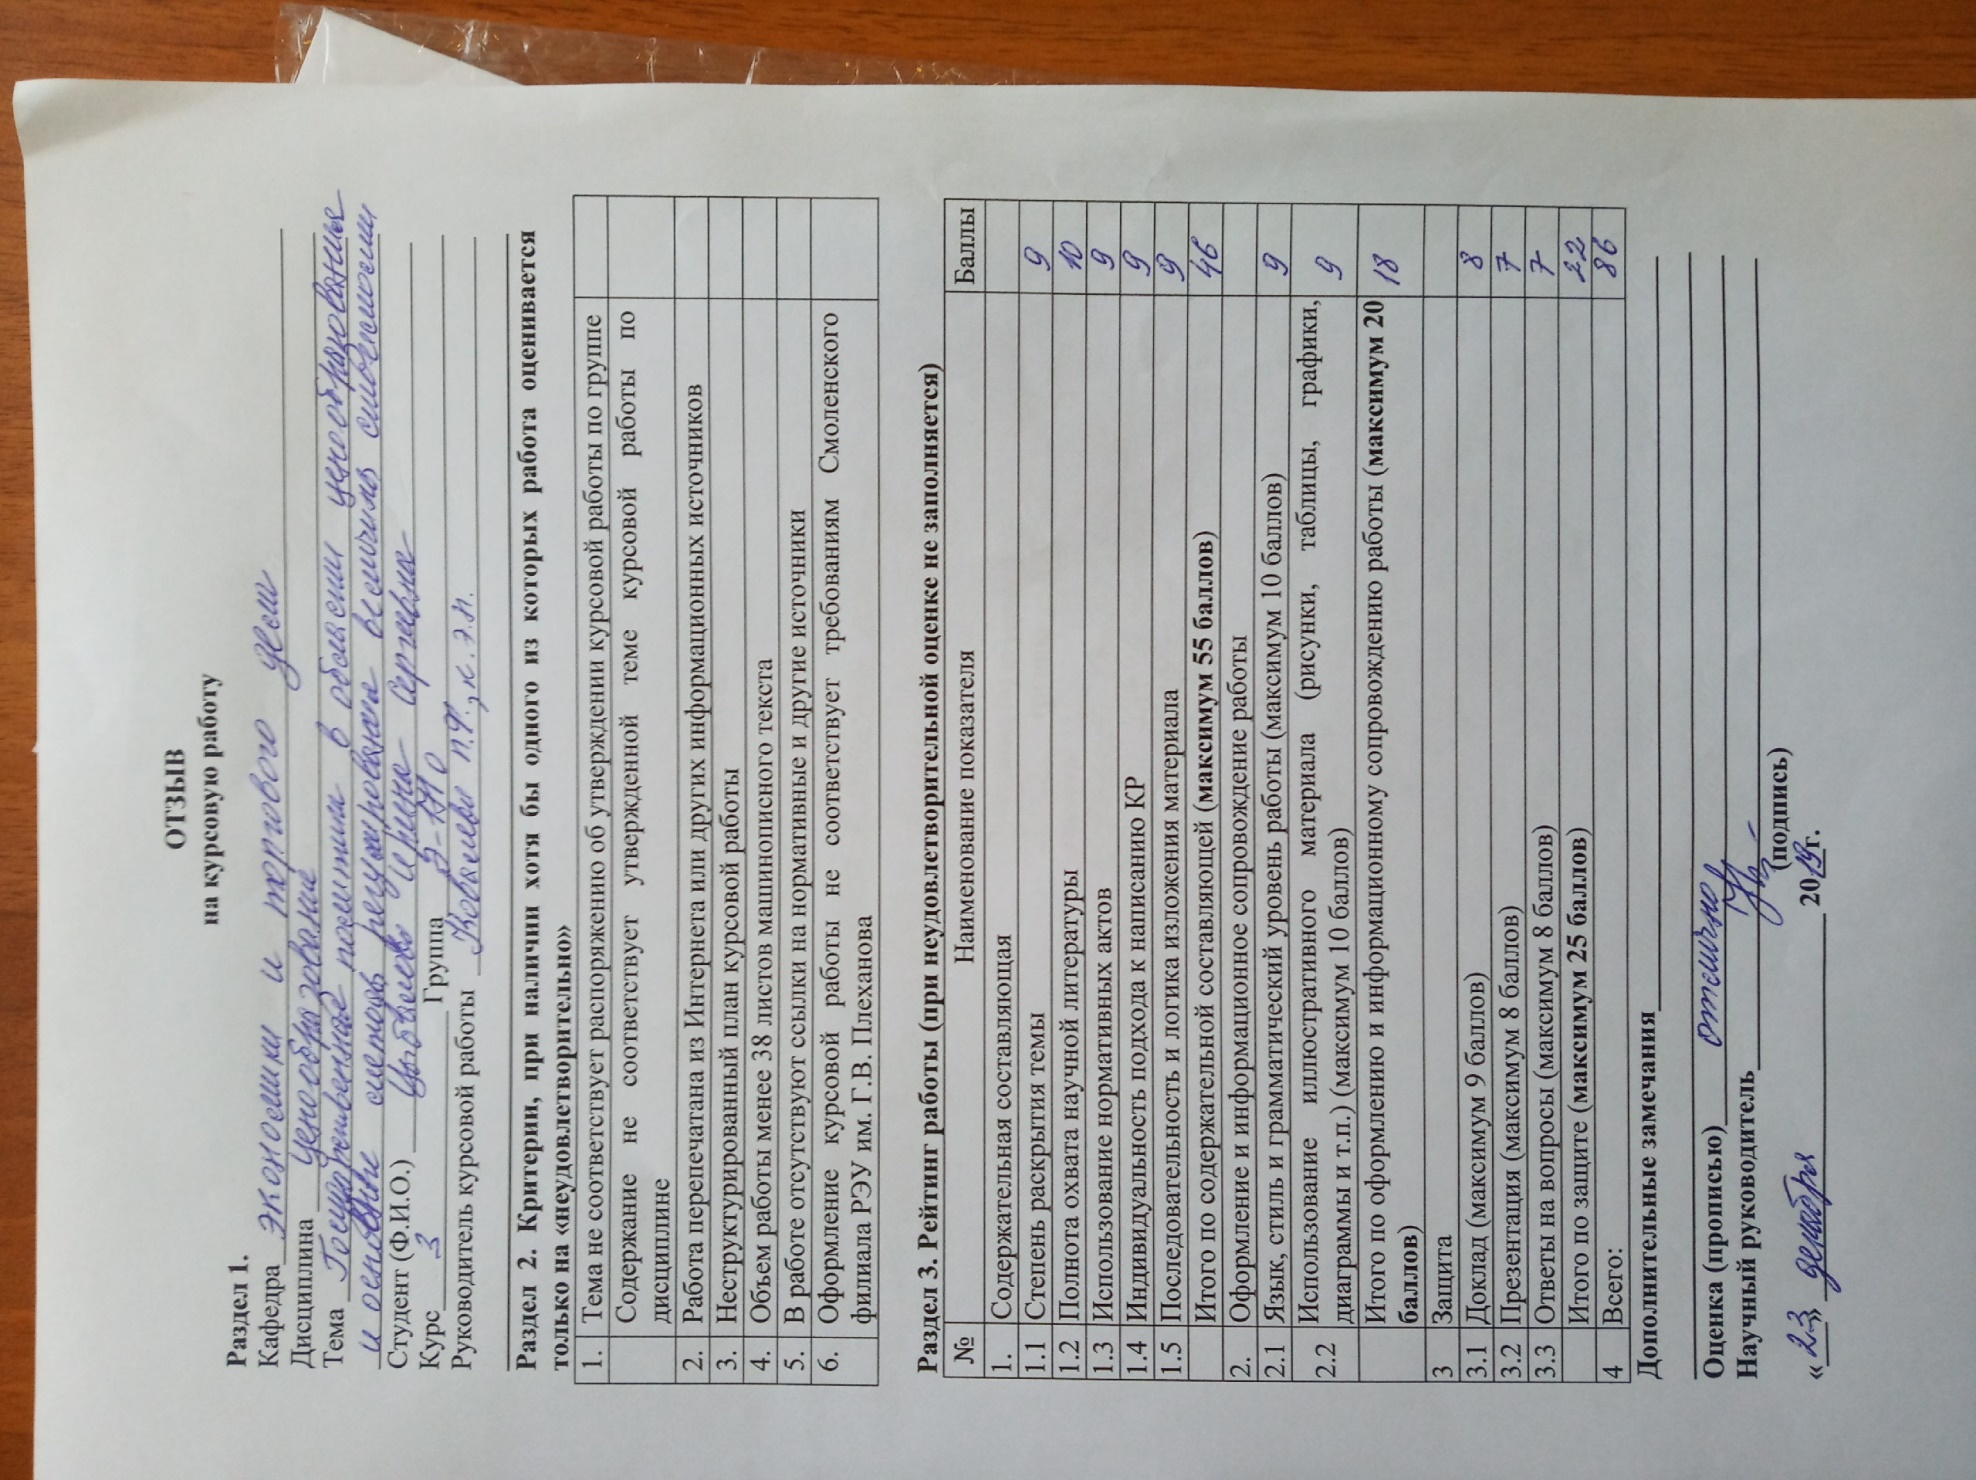 ОТЗЫВ
на курсовую работу
Раздел 1.
Кафедра экономики и торгового дела
Дисциплина ценообразование
Тема Государственная политика в области ценообразования
и основные методы регулирования величины стоимости
Студент (Ф.И.О.) Ирина Сергеевна
Курс 3 Группа
Руководитель курсовой работы Ковалева к.э.н.
Раздел 2. Критерии, при наличии хотя бы одного из которых работа оценивается
только на «неудовлетворительно»
1. Тема не соответствует распоряжению об утверждении курсовой работы по группе
Содержание не соответствует утвержденной теме курсовой работы по
дисциплине
2. Работа перепечатана из Интернета или других информационных источников
3. Неструктурированный план курсовой работы
4. Объем работы менее 38 листов машинописного текста
5. В работе отсутствуют ссылки на нормативные и другие источники
6. Оформление курсовой работы не соответствует требованиям Смоленского
филиала РЭУ им. Г.В. Плеханова
Раздел 3. Рейтинг работы (при неудовлетворительной оценке не заполняется)
№ Наименование показателя Баллы
1. Содержательная составляющая
1.1 Степень раскрытия темы 9
1.2 Полнота охвата научной литературы 10
1.3 Использование нормативных актов 9
1.4 Индивидуальность подхода к написанию КР 9
1.5 Последовательность и логика изложения материала 9
Итого по содержательной составляющей (максимум 55 баллов) 46
2. Оформление и информационное сопровождение работы
2.1 Язык, стиль и грамматический уровень работы (максимум 10 баллов) 9
2.2 Использование иллюстративного материала (рисунки, таблицы, графики, 9
диаграммы и т.п.) (максимум 10 баллов)
Итого по оформлению и информационному сопровождению работы (максимум 20 18
баллов)
3 Защита
3.1 Доклад (максимум 9 баллов) 8
3.2 Презентация (максимум 8 баллов) 7
3.3 Ответы на вопросы (максимум 8 баллов) 7
Итого по защите (максимум 25 баллов) 22
4 Всего: 86
Дополнительные замечания
Оценка (прописью) отлично
Научный руководитель
(подпись)
«23» декабря 2019г.